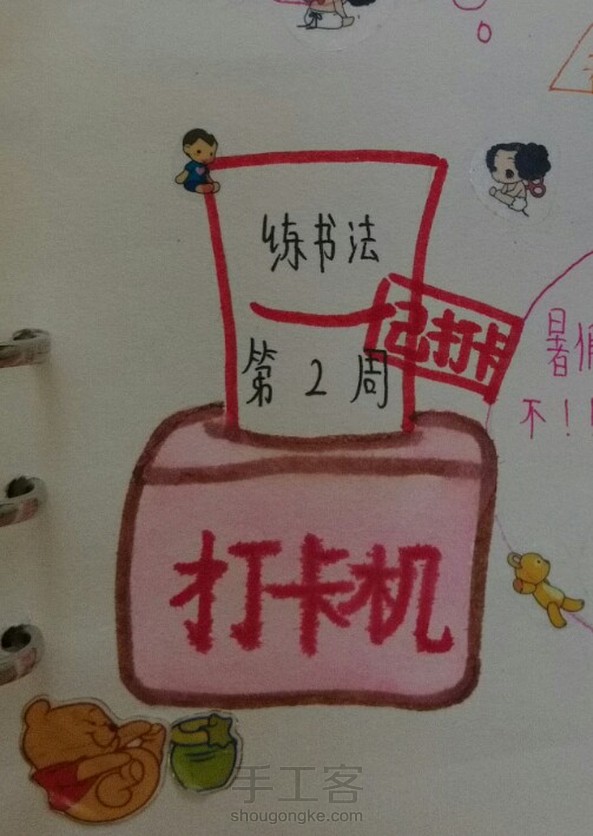 练书法
已打卡
第2周
暑
不!!
打卡机
手工客
shougongke.com